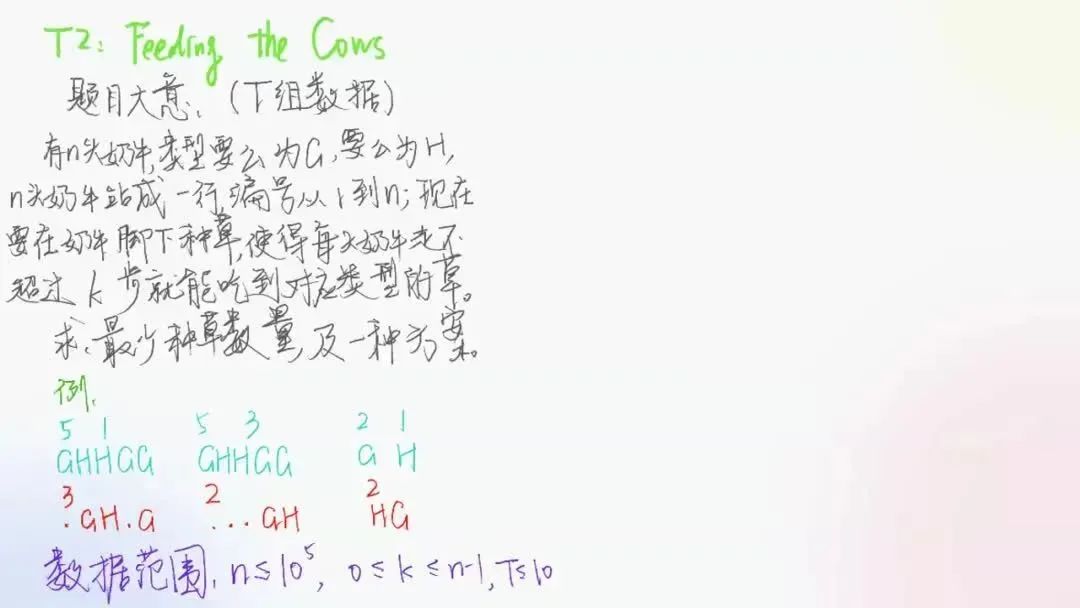 T2: Feeding the Cows
题目大意:(T组数据)
有n头奶牛,类型要么为G,要么为H,
n头奶牛站成一行,编号从1到n;现在
要在奶牛脚下种草,使得每头奶牛走不
超过k步就能吃到对应类型的草。
求:最少种草数量,及一种方案。
例:
5 1 5 3 2 1
GHHGG GHHGG G H
3 2 2
.GH.G ...GH HG
数据范围:n≤10⁵, 0≤k≤n-1,T≤10